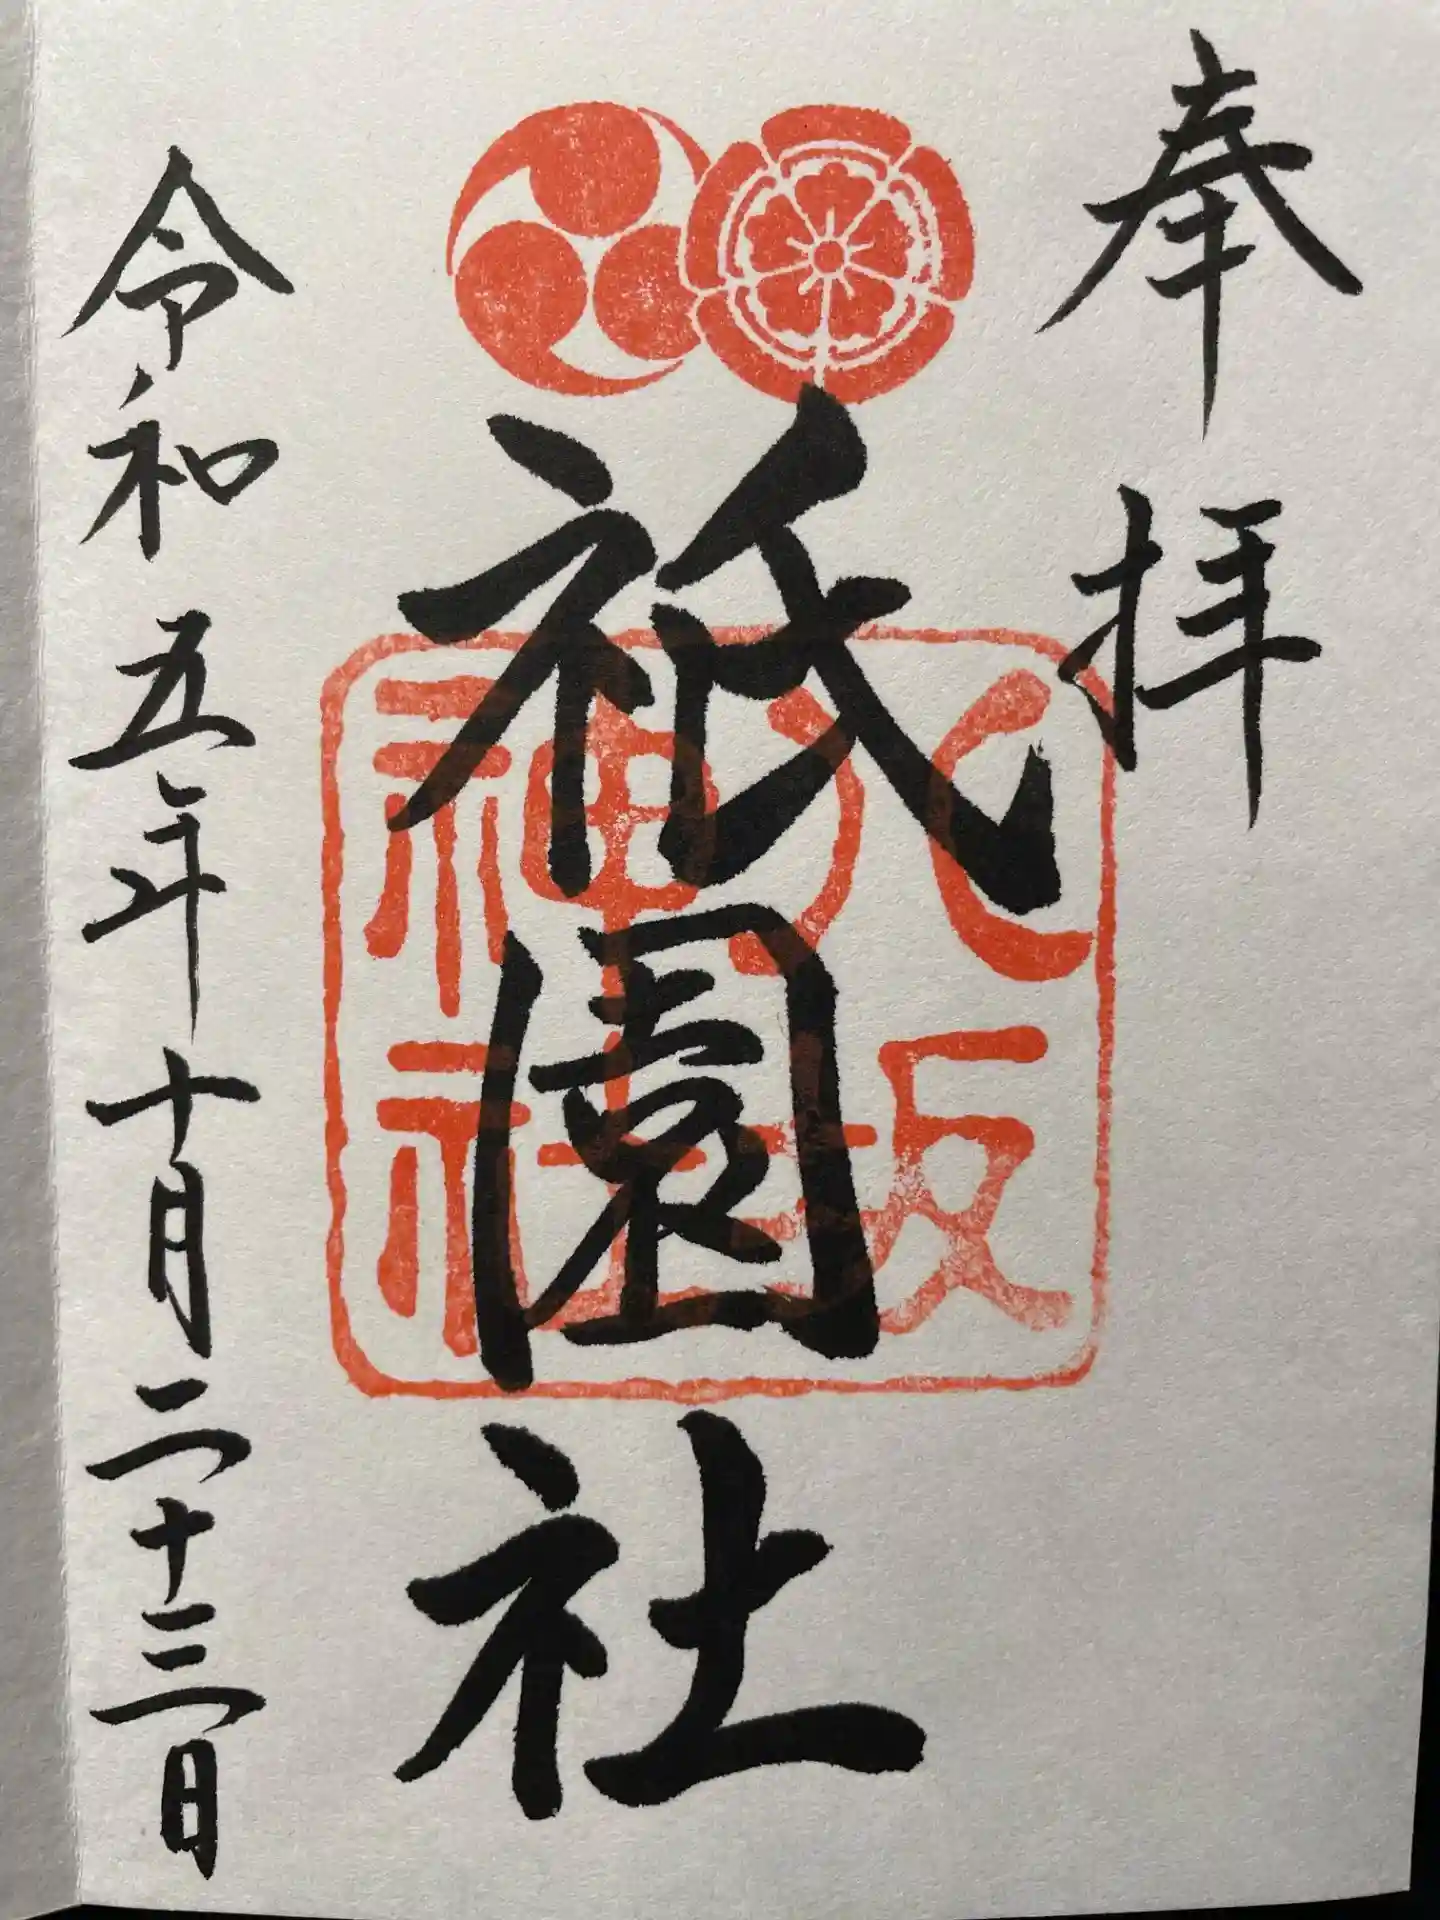 奉拝
祇園社
八坂
神社
令和五年十月二十三日